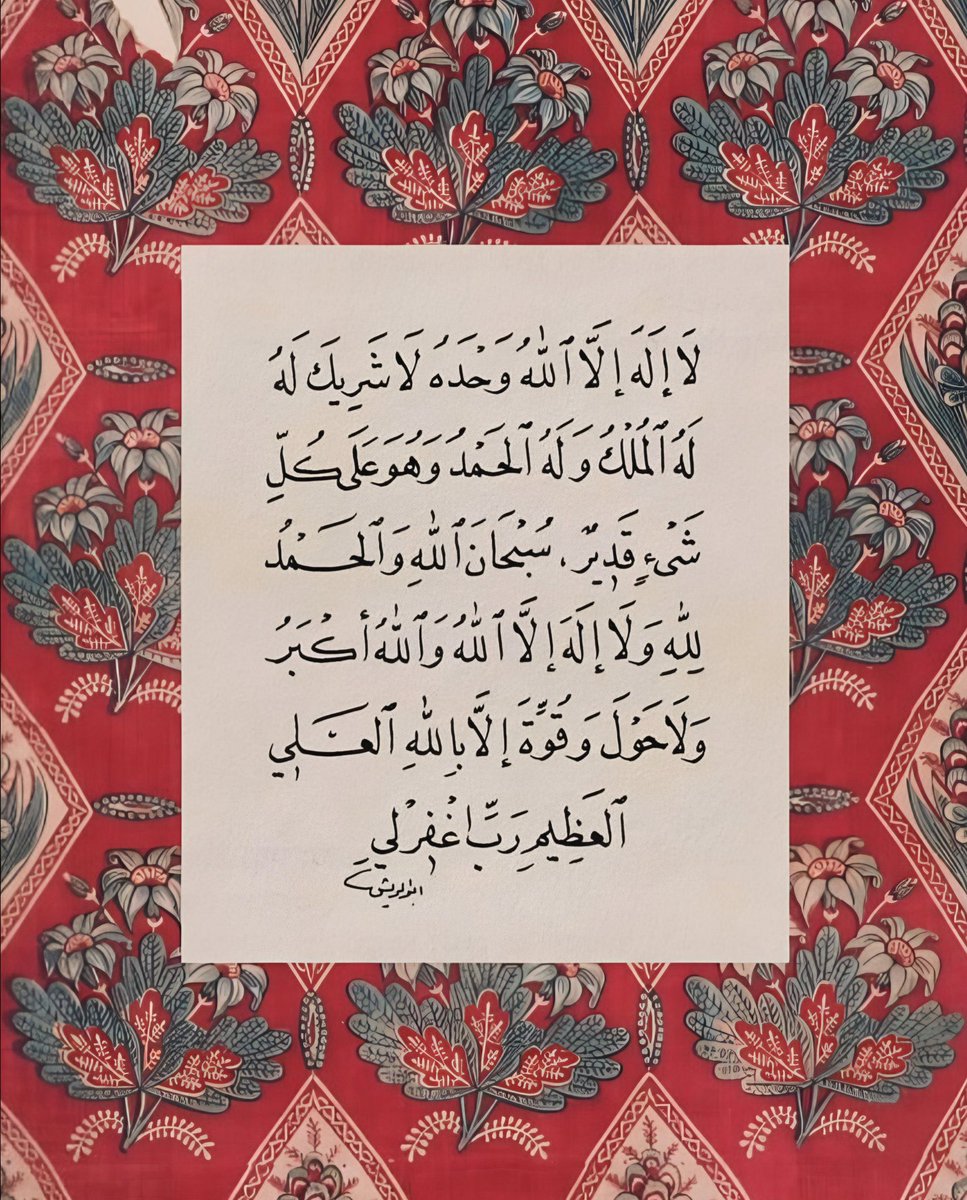 لَا إِلَهَ إِلَّا ٱللّٰهُ وَحْدَهُ لَا شَرِيكَ لَهُ
لَهُ ٱلْمُلْكُ وَلَهُ ٱلْحَمْدُ وَهُوَ عَلَى كُلِّ
شَىْءٍ قَدِيرٌ، سُبْحَانَ ٱللّٰهِ وَٱلْحَمْدُ
لِلّٰهِ وَلَا إِلَهَ إِلَّا ٱللّٰهُ وَٱللّٰهُ أَكْبَرُ
وَلَا حَوْلَ وَقُوَّةَ إِلَّا بِاللّٰهِ ٱلْعَلِي
ٱلْعَظِيمِ رَبِّ اغْفِرْ لِي